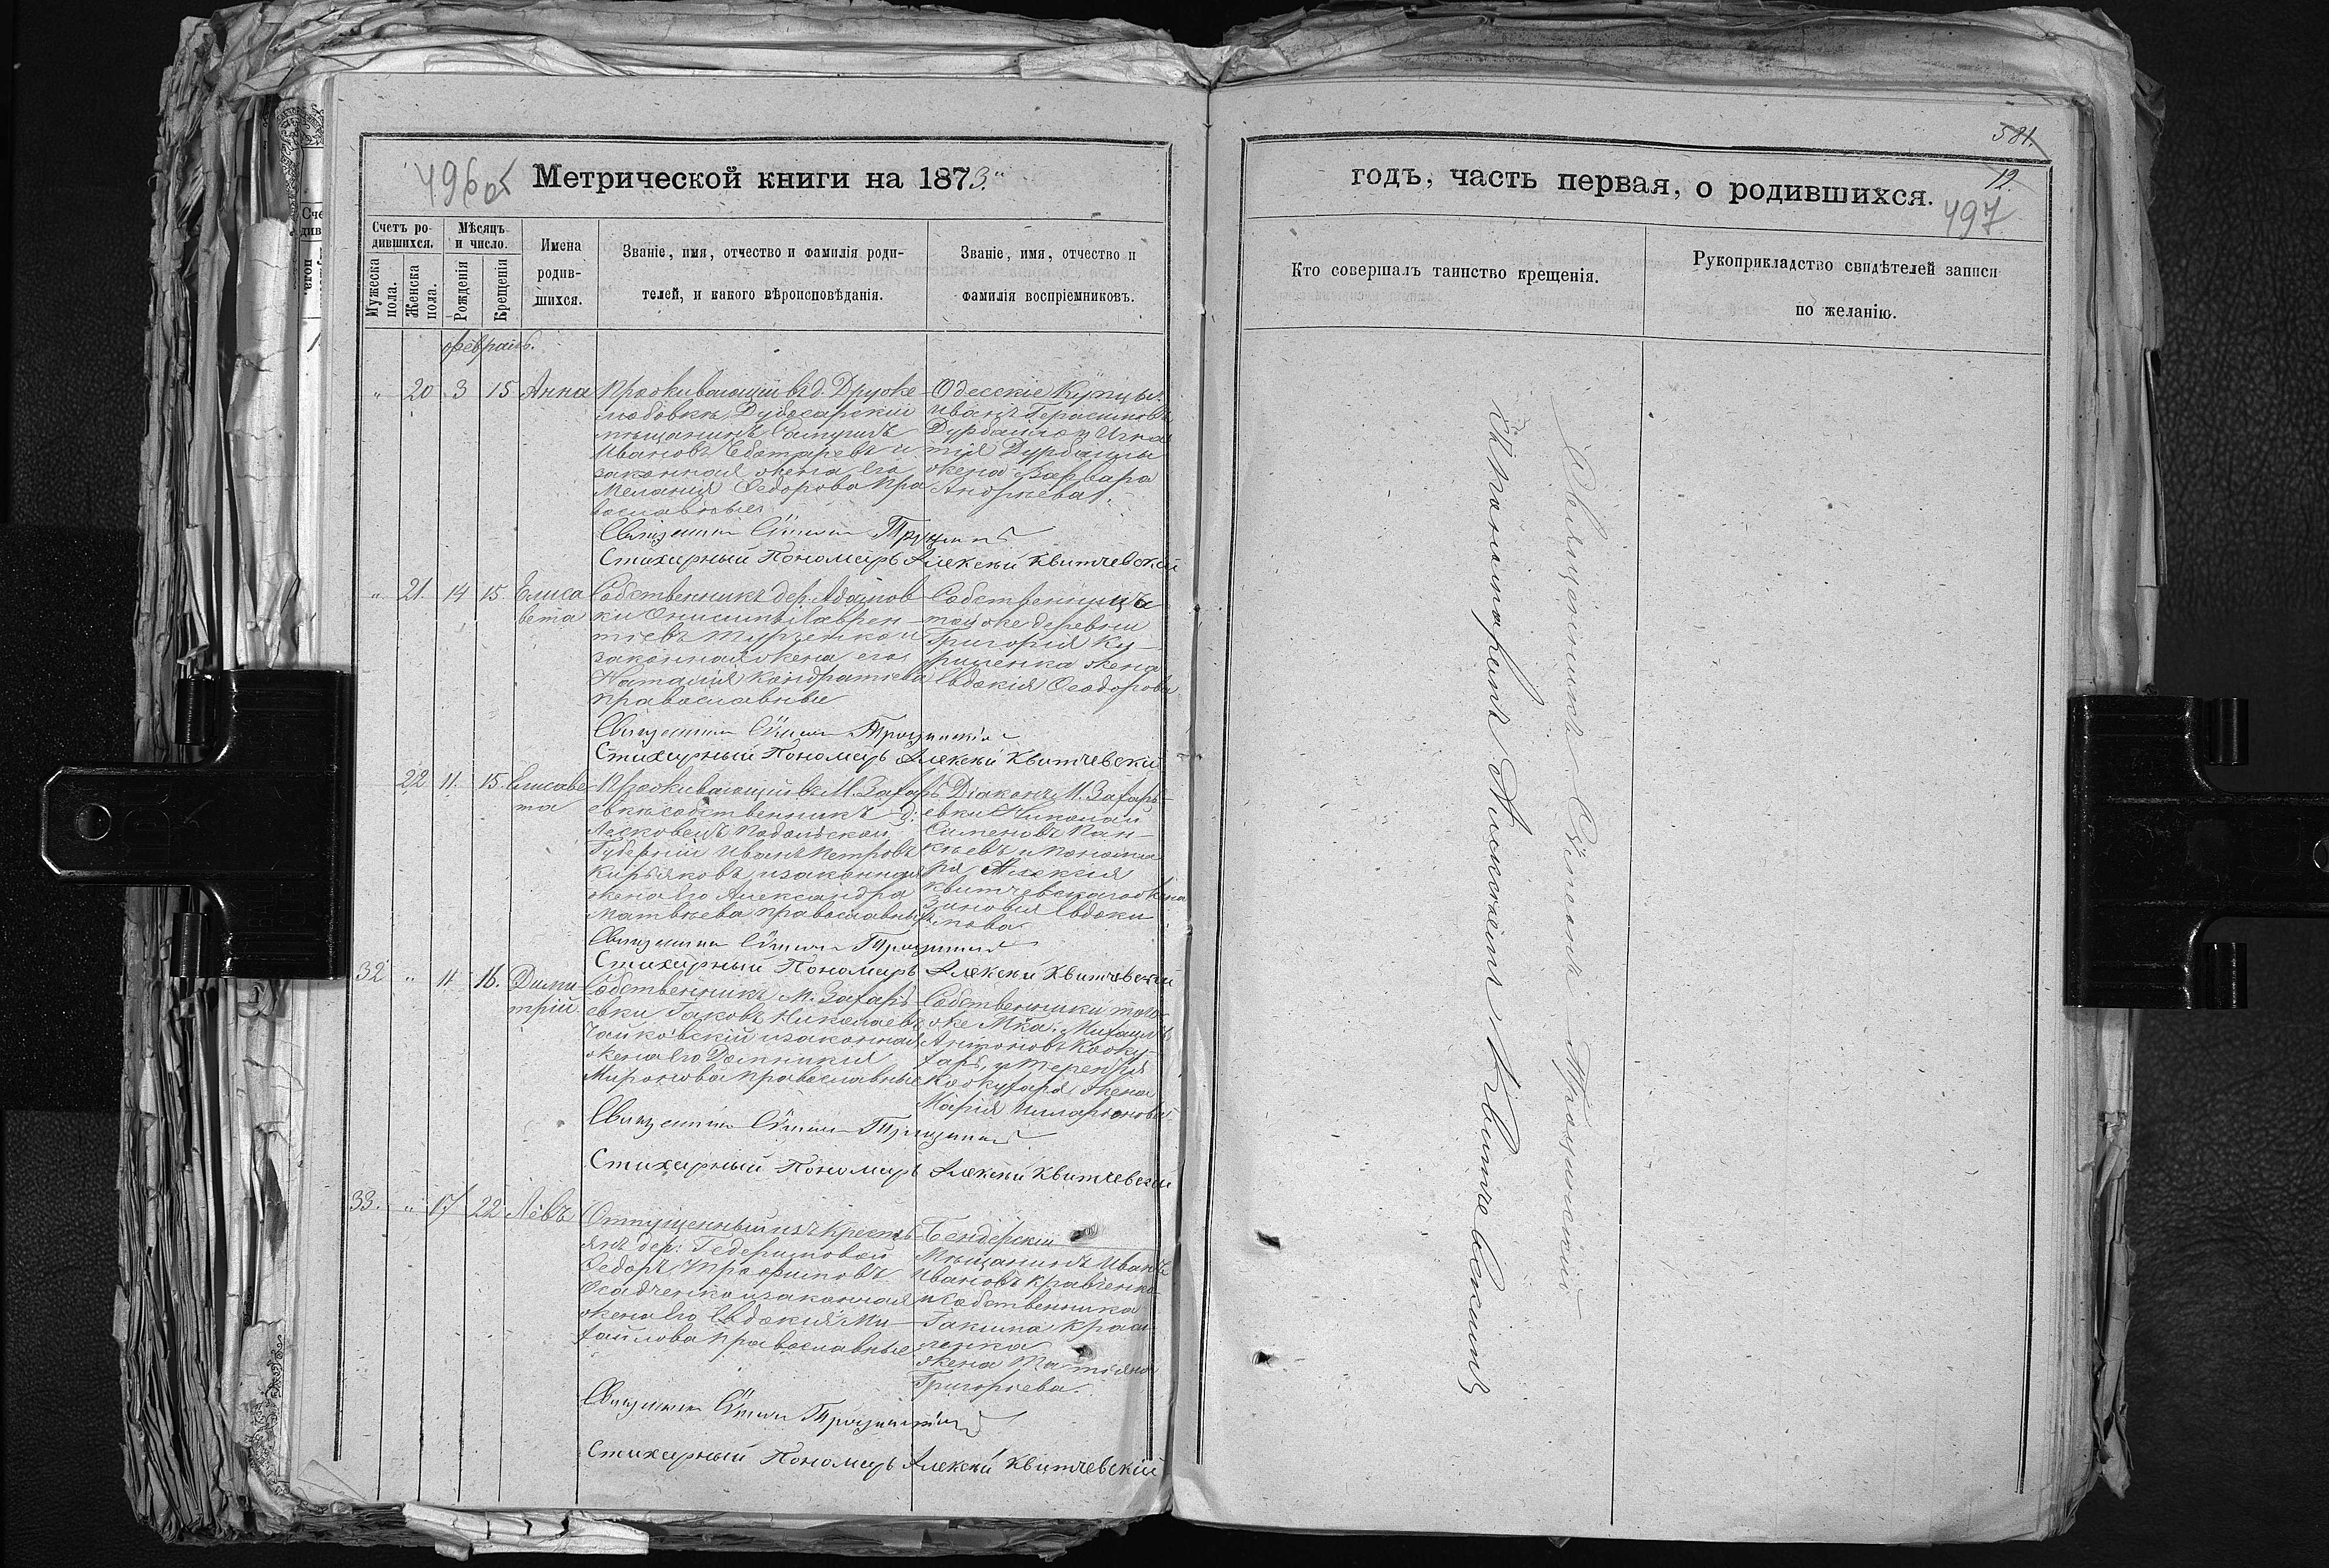 496 об
Метрической книги на 1873.
Счетъ родившихся.
Мѣсяцъ и число.
Мужеска пола.
Женска пола.
Рожденія
Крещенія
Имена
родив-
шихся.
Званіе, имя, отчество и фамилія роди-
телей, и какого вѣроисповѣданія.
Званіе, имя, отчество и
фамилія воспріемниковъ.
февраль.
" 20 3 15 Анна
Проживающій въ д. Друже
любовкѣ Дубосарскій
мѣщанинъ
Ивановъ и
законная жена его
Меланія Ѳедорова пра
вославные
Одесскіе Купцы
Иванъ Герасимовъ
и Игна
тія
жена Варвара
Андреева
Священникъ Сѵмеонъ
Стихарный Пономарь Алексѣй Квитчевскій
" 21. 14 15 Елиса
вета
Собственникъ дер. Адамов
ки Онисимъ Лаврен
тіевъ и
законная жена его
Наталія Кондратьева
православные
Собственника
той же деревни
Григорія Ку-
жена
Евдокія Ѳеодорова
Священникъ Сѵмеонъ
Стихарный Пономарь Алексѣй Квитчевскій
22 11. 15 Елисаве
та
Проживающій въ М. Захарь
евкѣ собственникъ д:
Подольской
Губерніи Иванъ Петровъ
Кирьяковъ и законная
жена его Александра
Матвѣева православные
Діаконъ М. Захарь-
евки Николай
Сименовъ Пан-
кѣевъ и Понома
ря Алексія
Квитчевскаго жена
Зиновія Евдоки
мова
Священникъ Сѵмеонъ
Стихарный Пономарь Алексѣй Квитчевскій
32 " 11 16. Дими
трій
Собственникъ М. Захарь
евки Іаковъ Николаевъ
Чайковскій и законная
жена его Домникія
Миронова православные
Собственники того
же М-ка: Михаилъ
Антоновъ Кожу-
харь, и Терентія
Кожухаря жена
Марія Иларіонова
Священникъ Сѵмеонъ
Стихарный Пономарь Алексѣй Квитчевскій
33. " 17 22 Левъ
Отпущенный изъ Кресть
янъ дер: Гедеримовой
Ѳедоръ Трофимовъ
Осадченко и законная
жена его Евдокія Ми-
хайлова православные
Бендерскій
Мѣщанинъ Иванъ
Ивановъ Кравченко
и Собственника
Іакима
жена Татіяна
Григорьева.
Священникъ Сѵмеонъ
Стихарный Пономарь Алексѣй Квитчевскій
581.
12.
497
годъ, часть первая, о родившихся.
Кто совершалъ таинство крещенія.
Рукоприкладство свидѣтелей записи
по желанію.
Священникъ Сѵмеонъ
Съ пономаремъ Алексѣемъ Квитчевскимъ